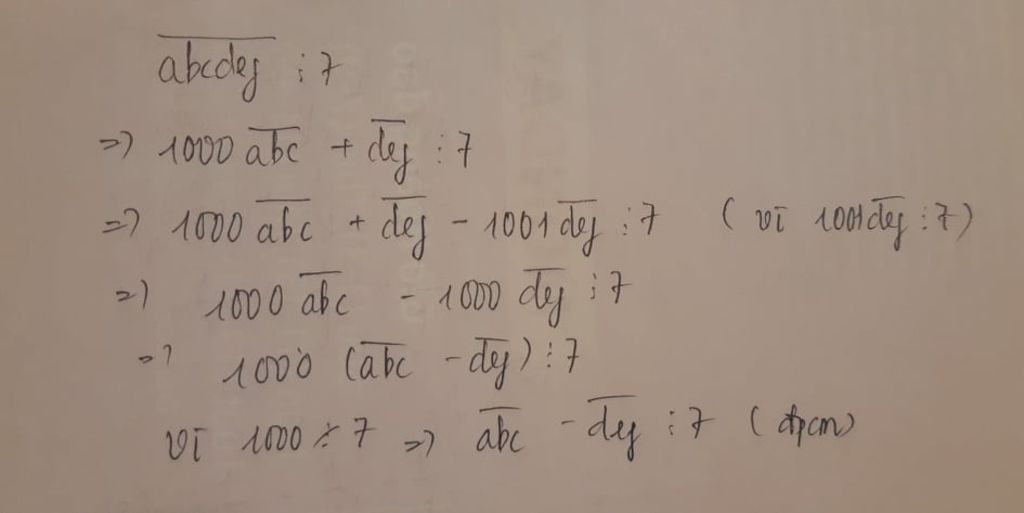 abcdeg ⋮ 7
=> 1000 abc + deg ⋮ 7
=> 1000 abc + deg - 1001 deg ⋮ 7 ( vì 1001 deg ⋮ 7 )
=> 1000 abc - 1000 deg ⋮ 7
=> 1000 (abc - deg) ⋮ 7
vì 1000 ⋮̸ 7 => abc - deg ⋮ 7 ( đpcm )